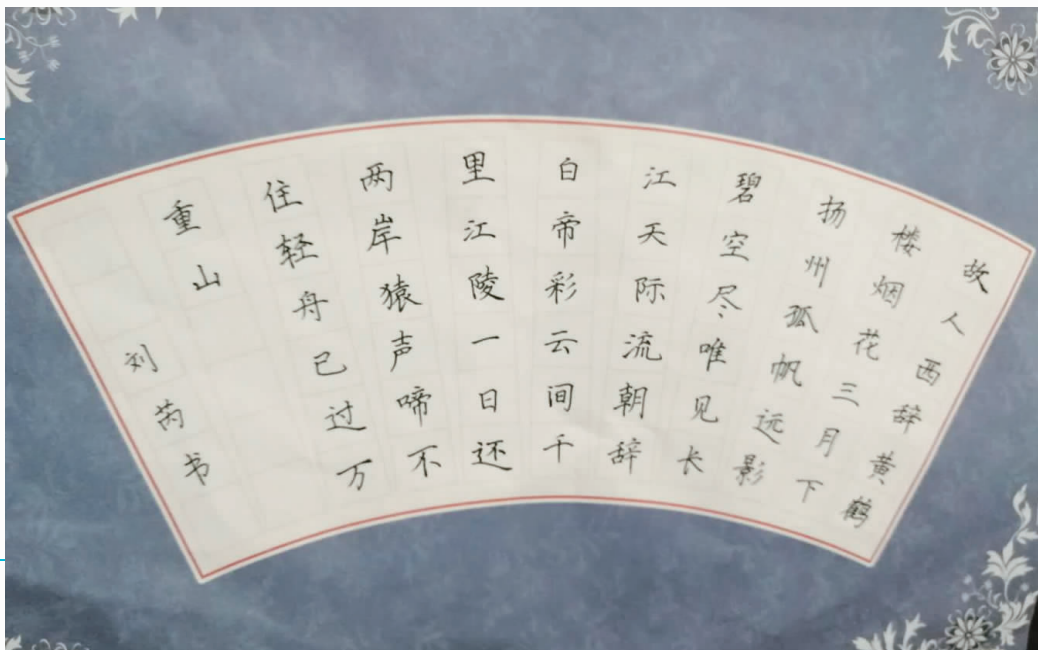 故人西辞黄鹤
楼烟花三月下
扬州孤帆远影
碧空尽唯见长
江天际流朝辞
白帝彩云间千
里江陵一日还
两岸猿声啼不
住轻舟已过万
重山
刘芮书